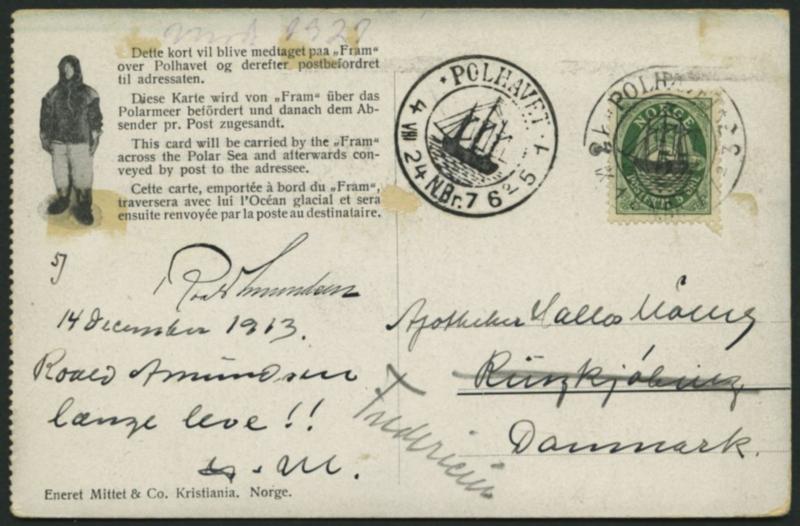 Dette kort vil blive medtaget paa „Fram"
over Polhavet og derefter postbefordret
til adressaten.
Diese Karte wird von „Fram" über das
Polarmeer befördert und danach dem Ab-
sender pr. Post zugesandt.
This card will be carried by the „Fram"
across the Polar Sea and afterwards con-
veyed by post to the adressee.
Cette carte, emportée à bord du „Fram",
traversera avec lui l'Océan glacial et sera
ensuite renvoyée par la poste au destinataire.
POLHAVET
4 VIII 24 N.Br. 76° 51
POLHAVET
NORGE
5
Roald Amundsen
14 December 1913.
Roald Amundsen
længe leve!!
Apotheker
Ringkjöbing
Danmark.
Fredericia
Eneret Mittet & Co. Kristiania. Norge.